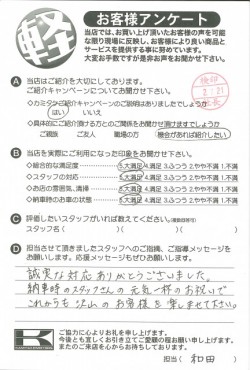 軽
お客様アンケート
当店では、お買い上げ頂いたお客様の声を可能
な限り現場に反映し、お客様により良い商品と
サービスを提供する事に努めています。
大変お手数ですが是非お声をお聞かせ下さい。
A 当店はご紹介を大切にしてあります。
ご紹介キャンペーンについてお聞かせ下さい。
検印
2.21
店長
◇カミタケご紹介キャンペーンのご説明はありましたでしょうか
はい いいえ
◇具体的にご紹介頂ける方とのご関係をお聞かせ頂けますでしょうか
ご親族 ご友人 職場の方 機会があれば紹介したい
B 当店を実際にご利用になった印象をお聞かせ下さい。
◇総合的な満足度 5.大満足 4.満足 3.ふつう 2.やや不満 1.不満
◇スタッフの対応 5.大満足 4.満足 3.ふつう 2.やや不満 1.不満
◇お店の雰囲気、清掃 5.大満足 4.満足 3.ふつう 2.やや不満 1.不満
◇納車時のお車の状態 5.大満足 4.満足 3.ふつう 2.やや不満 1.不満
C 評価したいスタッフがいれば教えてください。(複数回答可)
スタッフ名( )( )( )
D 担当させて頂きましたスタッフへのご指摘、ご指導メッセージを
お願いします。応援メッセージもぜひお願いします。
誠実な対応ありがとうございました。
納車時のスタッフさんの元気一杯のお祝いで
これからも沢山のお客様を楽しませて下さい。
K
ご協力に心よりお礼を申し上げます。
今後とも宜しくお引き立てご愛顧の程お願い申し上げます。
またのご来店を心からお待ちしております。
担当( 和田 )